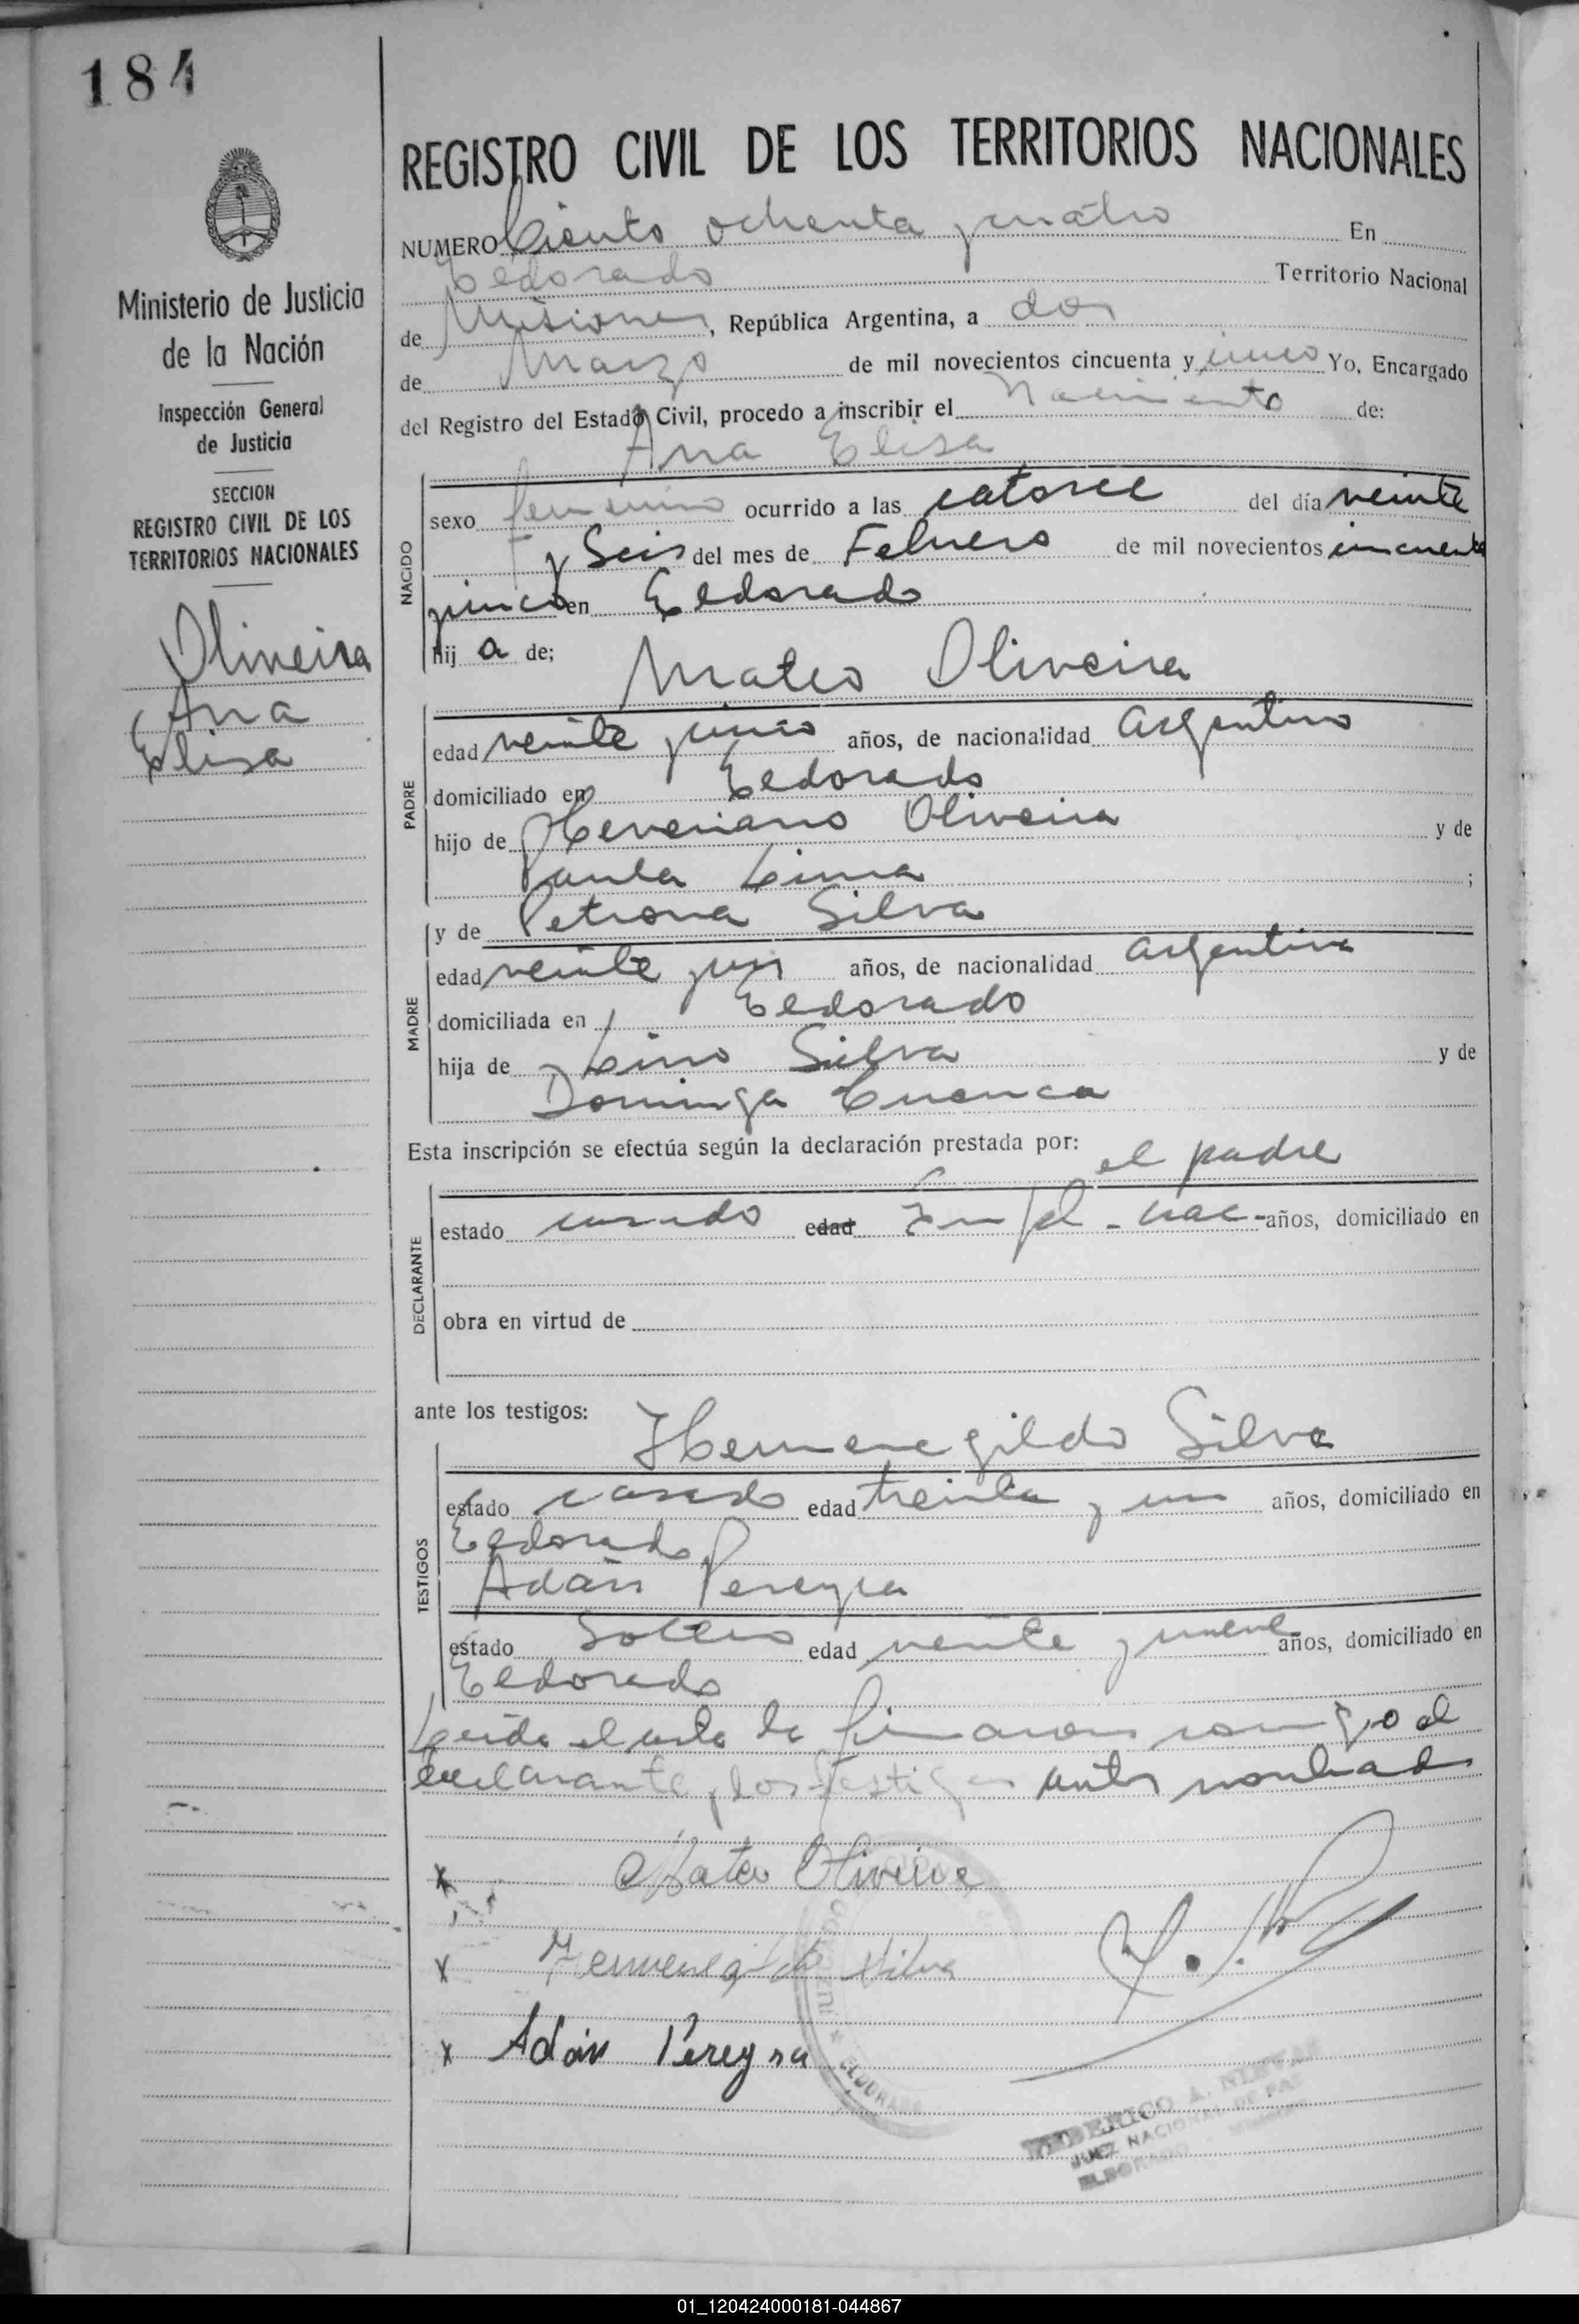 184
Ministerio de Justicia
de la Nación
Inspección General
de Justicia
SECCION
REGISTRO CIVIL DE LOS
TERRITORIOS NACIONALES
Oliveira
Ana
Elisa
REGISTRO CIVIL DE LOS TERRITORIOS NACIONALES
NUMERO Ciento ochenta y cuatro En
Eldorado Territorio Nacional
de Misiones, República Argentina, a dos
de Marzo de mil novecientos cincuenta y cinco Yo, Encargado
del Registro del Estado Civil, procedo a inscribir el Nacimiento de:
Ana Elisa
NACIDO
sexo femenino ocurrido a las catorce del día veinte
y Seis del mes de Febrero de mil novecientos cincuenta
y cinco en Eldorado
hij a de;
Mateo Oliveira
PADRE
edad veinte y cinco años, de nacionalidad argentino
domiciliado en Eldorado
hijo de Oliveira y de
Paula Lima ;
y de Petrona Silva
MADRE
edad veinte y años, de nacionalidad argentina
domiciliada en Eldorado
hija de Lino Silva y de
Dominga Cuenca
Esta inscripción se efectúa según la declaración prestada por: el padre
DECLARANTE
estado casado edad años, domiciliado en
obra en virtud de
ante los testigos:
Hermenegildo Silva
TESTIGOS
estado casado edad treinta y un años, domiciliado en
Eldorado
Adán Pereyra
estado Soltero edad veinte y nueve años, domiciliado en
Eldorado
Leída el acta la firmaron conmigo el
declarante y los testigos antes nombrados
x Mateo Oliveira
x Hermenegildo Silva
x Adán Pereyra
ELDORADO
FEDERICO A.
JUEZ NACIONAL DE PAZ
ELDORADO - MISIONES
01_120424000181-044867